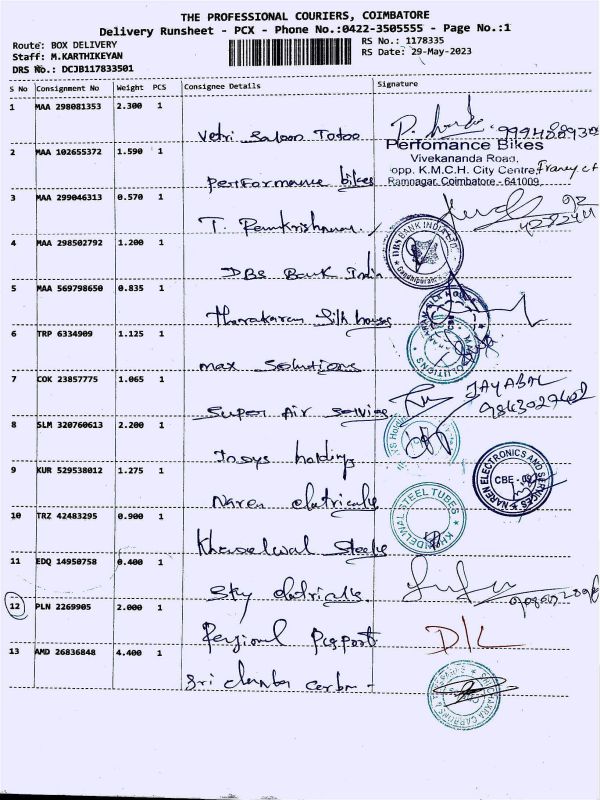 THE PROFESSIONAL COURIERS, COIMBATORE
Delivery Runsheet - PCX - Phone No.:0422-3505555 - Page No.:1
Route: BOX DELIVERY RS No.: 1178335
Staff: M.KARTHIKEYAN RS Date: 29-May-2023
DRS No.: DCJB117833501
S No Consignment No Weight PCS Consignee Details Signature
1 MAA 298081353 2.300 1
Vetri Saloon Tatoo
2 MAA 102655372 1.590 1 Perfomance Bikes
Vivekananda Road,
opp. K.M.C.H. City Centre,
Performance bikes Ramnagar, Coimbatore - 641009.
3 MAA 299046313 0.570 1
T. Ramkrishnan
4 MAA 298502792 1.200 1 DBS BANK INDIA LTD.
DBS Bank India
5 MAA 569798650 0.835 1
Tharakaram Silk house
6 TRP 6334909 1.125 1
max Solutions
7 COK 23857775 1.065 1 JAYABAL
Super Air Service
8 SLM 320760613 2.200 1
Insys holdings
9 KUR 529538012 1.275 1 NAREN ELECTRONICS AND SERVICES
CBE
Naren
10 TRZ 42483295 0.900 1 KHANDELWAL STEEL TUBES
11 EDQ 14950758 0.400 1
Sky
12 PLN 2269905 2.000 1
D/L
13 AMD 26836848 4.400 1
Sri